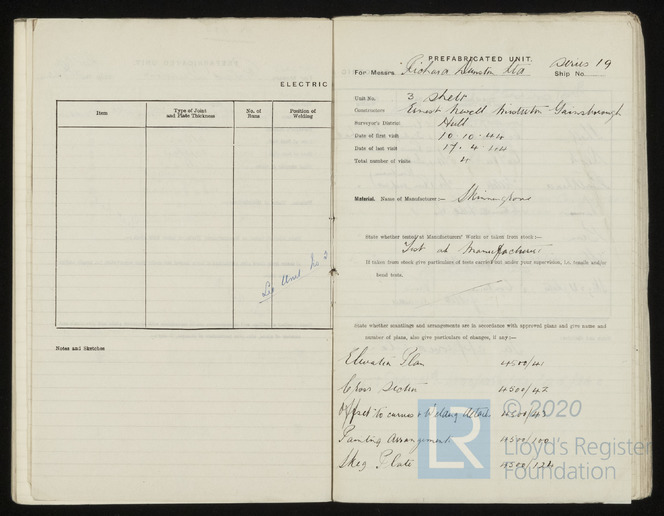 ELECTRIC
Item
Type of Joint and Plate Thickness
No. of Runs
Position of Welding
See Unit No 3
Notes and Sketches
PREFABRICATED UNIT.
Series 19
For Messrs. Richard Dunston Ltd Ship No.
Unit No. 3 Skeg
Constructors Ernest Newell Misterton Gainsborough
Surveyor's District Hull
Date of first visit 10.10.44
Date of last visit 17.4.
Total number of visits
Material. Name of Manufacturer:— Skinningrove
State whether tested at Manufacturers' Works or taken from stock:—
Test at Manufacturers
If taken from stock give particulars of tests carried out under your supervision, i.e. tensile and/or
bend tests.
State whether scantlings and arrangements are in accordance with approved plans and give name and
number of plans, also give particulars of changes, if any:—
Elevation Plan 4500/41
Cross Section 4500/42
Offset to curves & Welding details 4500/43
Painting Arrangement 4500/100
Skeg Plate 4500/124
© 2020
LR
Lloyd's Register
Foundation